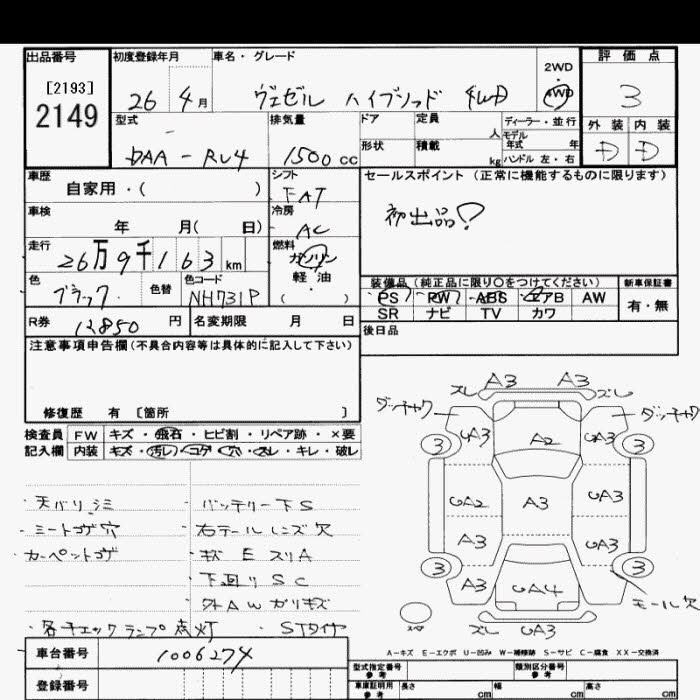 出品番号
[2193]
2149
初度登録年月
26 4月
車名・グレード
ヴェゼル ハイブリッド 4WD
2WD
4WD
評価点
3
外装 内装
D D
型式
DAA - RU4
排気量
1500 cc
ドア 定員 人
形状 積載 kg
ディーラー・並行
モデル年式 年
ハンドル 左・右
車歴
自家用・( )
シフト
FAT
セールスポイント (正常に機能するものに限ります)
初出品!
車検
年 月( 日)
冷房
AC
走行
26万9千163 km
燃料
ガソリン
軽・油
( )
色
ブラック
色替
色コード
NH731P
装備品 (純正品に限り○をつけてください)
PS PW ABS エアB AW
SR ナビ TV カワ
新車保証書
有・無
R券 12850 円
名変期限 月 日
後日品
注意事項申告欄 (不具合内容等は具体的に記入して下さい)
修復歴 有 [箇所 ]
検査員 FW キズ・飛石・ヒビ割・リペア跡・×要
記入欄 内装 キズ・汚レ・コゲ・穴・スレ・キレ・破レ
・天バリシミ
・シートコゲ穴
・カーペットコゲ
・バッテリー下S
・右テールレンズ欠
・下廻りSC
・外AWガリキズ
・各チェックランプ点灯 ・STタイヤ
スレ A3 A3 スレ
ダッチャク ダッチャク
UA3 A2 UA3
3 3
UA2 A3 UA3
A3 UA3
3 3
A3 UA4 A3
モール欠
スペア
スレ UA3
A-キズ E-エクボ U-凹み W-補修跡 S-サビ C-腐食 XX-交換済
車台番号 1006274
登録番号
型式指定番号 参考
類別区分番号 参考
車庫証明用 参考 長さ cm 幅 cm 高さ cm